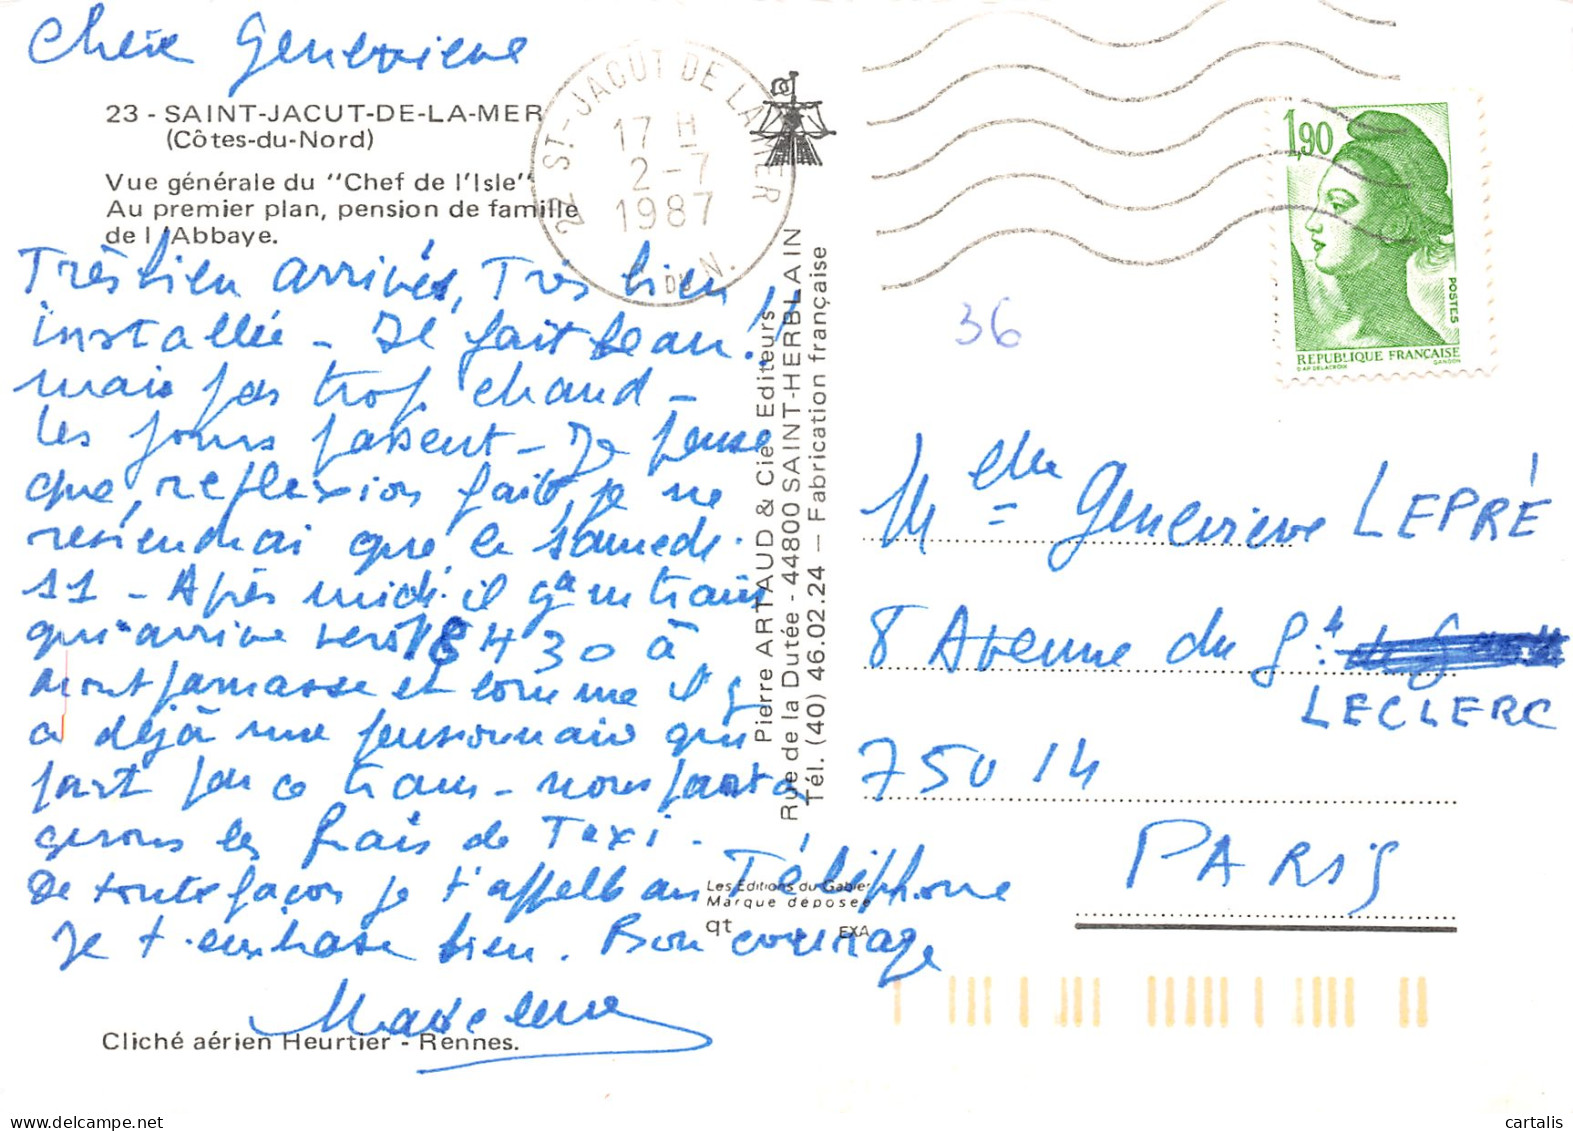 Chère Geneviève
23 - SAINT-JACUT-DE-LA-MER
(Côtes-du-Nord)
Vue générale du "Chef de l'Isle"
Au premier plan, pension de famille
de l'Abbaye.
Très bien arrivée, Très bien
installée - Il fait beau !!
mais pas trop chaud -
Les jours passent - Je pense
que, reflexion faite, je ne
reviendrai que le samedi
11 - Après midi il y a un train
qui arrive vers 18 H 30 à
Montparnasse et comme il y
a déjà une pensionnaire qui
part par ce train - nous parta
gerons les frais de Taxi -
De toute façon je t'appelle au Téléphone
Je t'embrasse bien. Bon courage
Madeleine
Cliché aérien Heurtier - Rennes.
22 ST-JACUT DE LA MER
17 H
2-7
1987
C. DU N.
Pierre ARTAUD & Cie Editeurs
Rue de la Dutée - 44800 SAINT-HERBLAIN
Tél. (40) 46.02.24 — Fabrication française
Les Editions du Gabier
Marque déposée
qt
EXA
1,90
POSTES
REPUBLIQUE FRANÇAISE
D'AP. DELACROIX GANDON
36
Melle Geneviève LEPRÉ
8 Avenue du Gal
LECLERC
75014
PARIS
cartalis